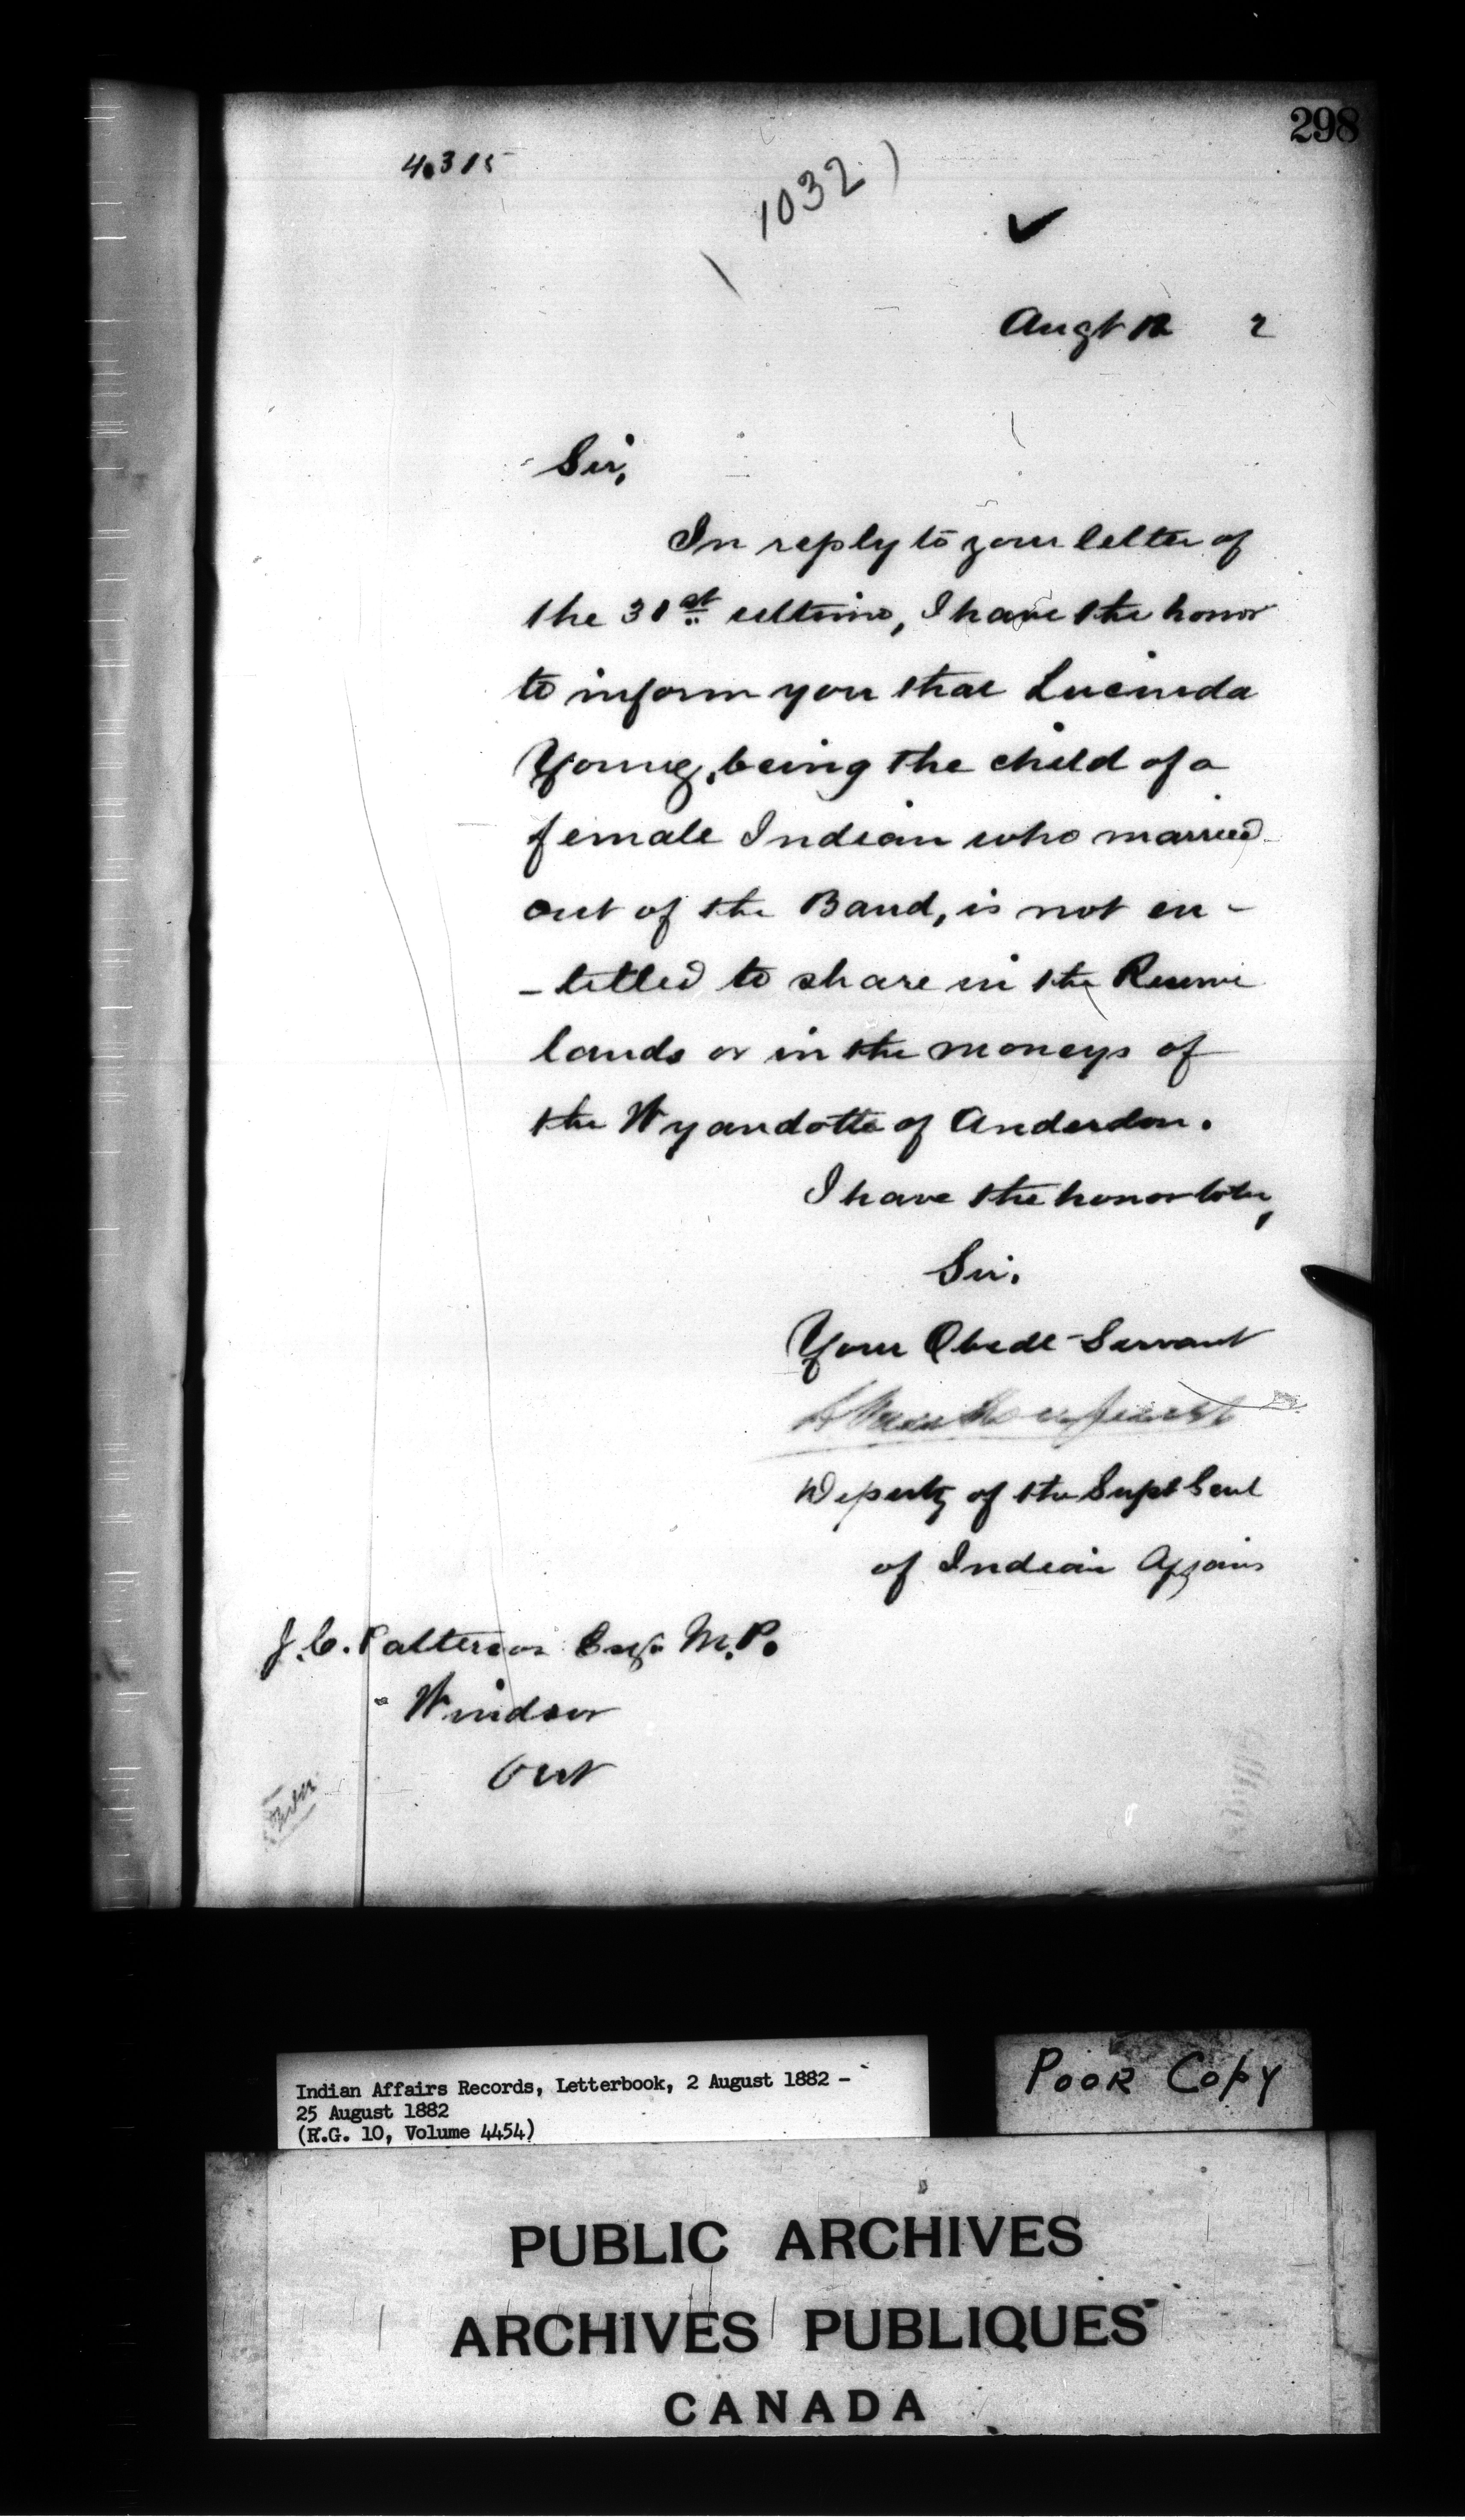 298
4.315
1032
Augt 12 2
Sir,
In reply to your letter of
the 31st ultimo, I have the honor
to inform you that Lucinda
Young, being the child of a
female Indian who married
out of the Band, is not en-
-titled to share in the Reserve
lands or in the moneys of
the Wyandotts of Anderdon.
I have the honor to be,
Sir.
Your Obedt Servant
Deputy of the Supt Genl
of Indian Affairs
J.C. Patterson Esqr. M.P.
Windsor
Ont
Indian Affairs Records, Letterbook, 2 August 1882 -
25 August 1882
(R.G. 10, Volume 4454)
POOR COPY
PUBLIC ARCHIVES
ARCHIVES PUBLIQUES
CANADA